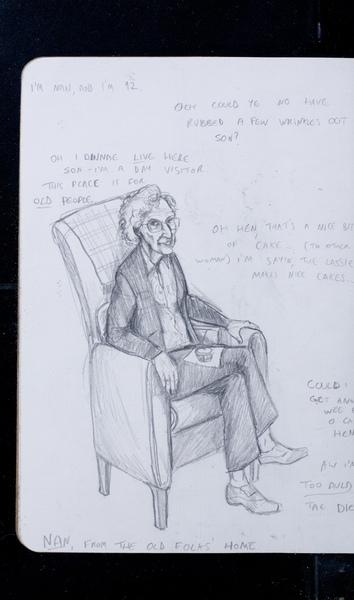 I'M NAN, AND I'M 92.
OCH COULD YE NO HAVE
RUBBED A FEW WRINKLES OOT
SON?
OH I DINNAE LIVE HERE
SON - I'M A DAY VISITOR
THIS PLACE IS FOR
OLD PEOPLE
OH HEN, THAT'S A NICE BIT
OF CAKE... (TO OTHER
WOMAN) I'M SAYIN, THE LASSIE
MAKES NICE CAKES...
COULD I
GET AN
WEE
O CA
HEN
AW I'M
TOO AULD
TAE DIE
NAN, FROM THE OLD FOLKS' HOME